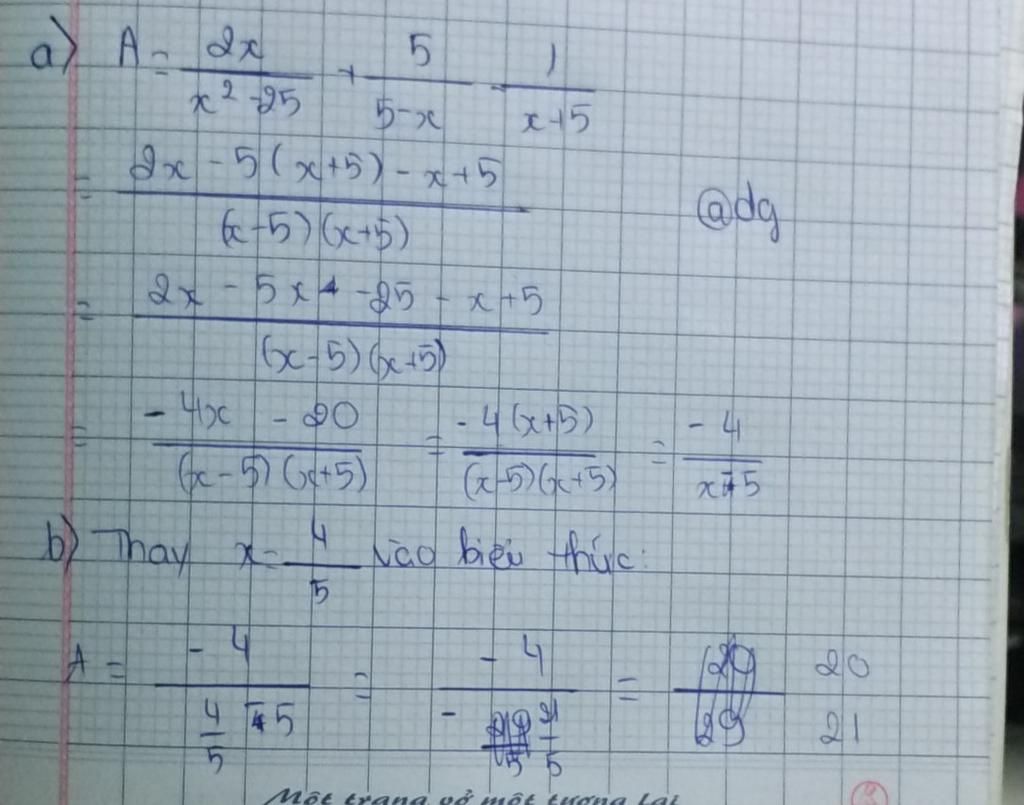 a) A = 2x / (x² - 25) + 5 / (5 - x) - 1 / (x + 5)
= (2x - 5(x+5) - x + 5) / ((x-5)(x+5))
@dg
= (2x - 5x - 25 - x + 5) / ((x-5)(x+5))
= (-4x - 20) / ((x-5)(x+5)) = -4(x+5) / ((x-5)(x+5)) = -4 / (x-5)
b) Thay x = 4/5 vào biểu thức:
A = -4 / (4/5 - 5) = -4 / (-21/5) = 20/21
Một trang vở một tương lai